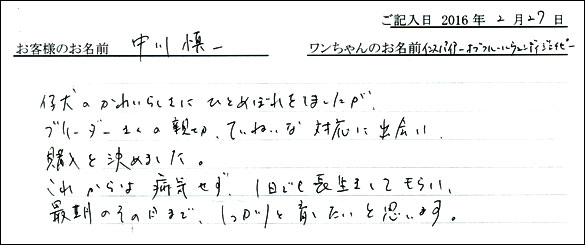 ご記入日 2016 年 2 月 27 日
お客様のお名前 中川 慎一 ワンちゃんのお名前 インスパイアーオブフルールウェンディジェイピー
仔犬のかわいらしさにひとめぼれをしましたが、
ブリーダーさんの親切、ていねいな対応に出会い、
購入を決めました。
これからは病気せず、1日でも長生きしてもらい、
最期のその日まで、しっかりと育てたいと思います。